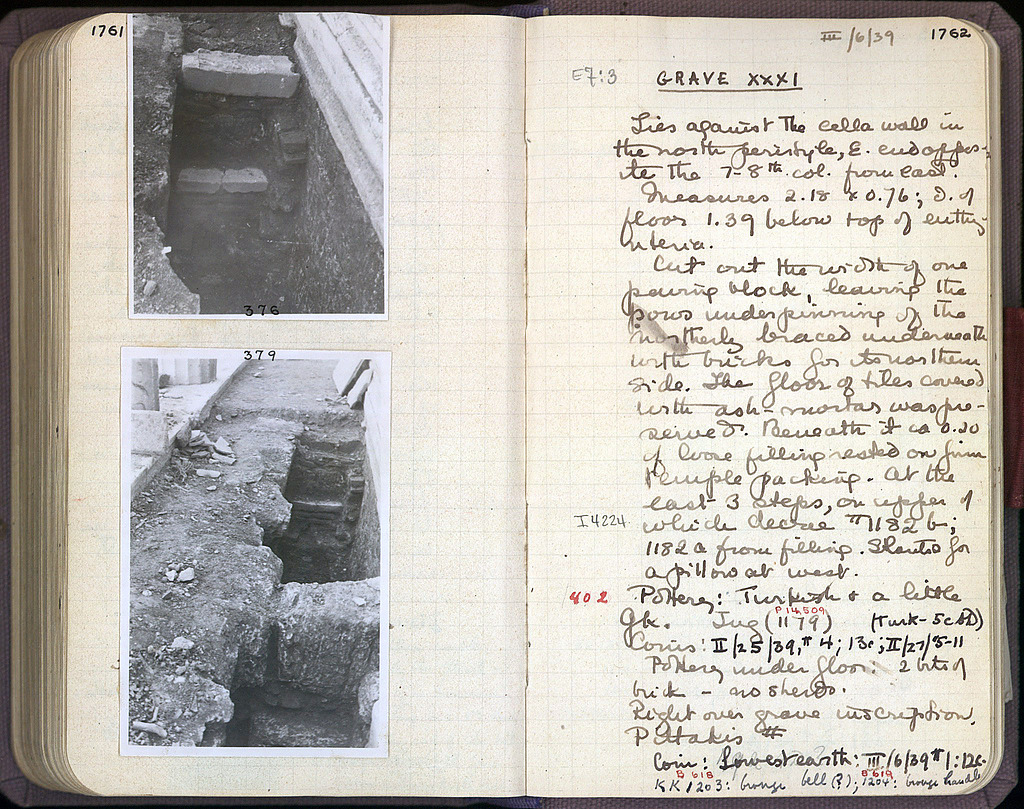 1761
376
379
III/6/39 1762
E7:3 GRAVE XXXI
Lies against the cella wall in
the north peristyle, E. end oppos-
ite the 7-8th col. from east.
Measures 2.18 x 0.76; D. of
floor 1.39 below top of euthyn-
teria.
Cut out the width of one
paving block, leaving the
poros underpinning of the
northerly braced underneath
with bricks for its northern
side. The floor of tiles covered
with ash-mortar was pre-
served. Beneath it ca 0.20
of loose filling rested on firm
temple packing. At the
east 3 steps, on upper of
I 4224 which decree π1182 b;
1182 a from filling. Slanted for
a pillow at west.
802 Pottery: Turkish + a little
P 14,509
Gk. Jug (1179) (Turk-5cBC)
Coins: II/25/39, # 4; 13c; II/27/5-11
Pottery under floor: 2 bits of
brick - no sherds.
Right over grave inscription,
Pittakis #
Coin: Lowest earth: III/6/39 #1: 12c.
B 618 B 619
KK 1203: bronze bell (?); 1204: bronze handle